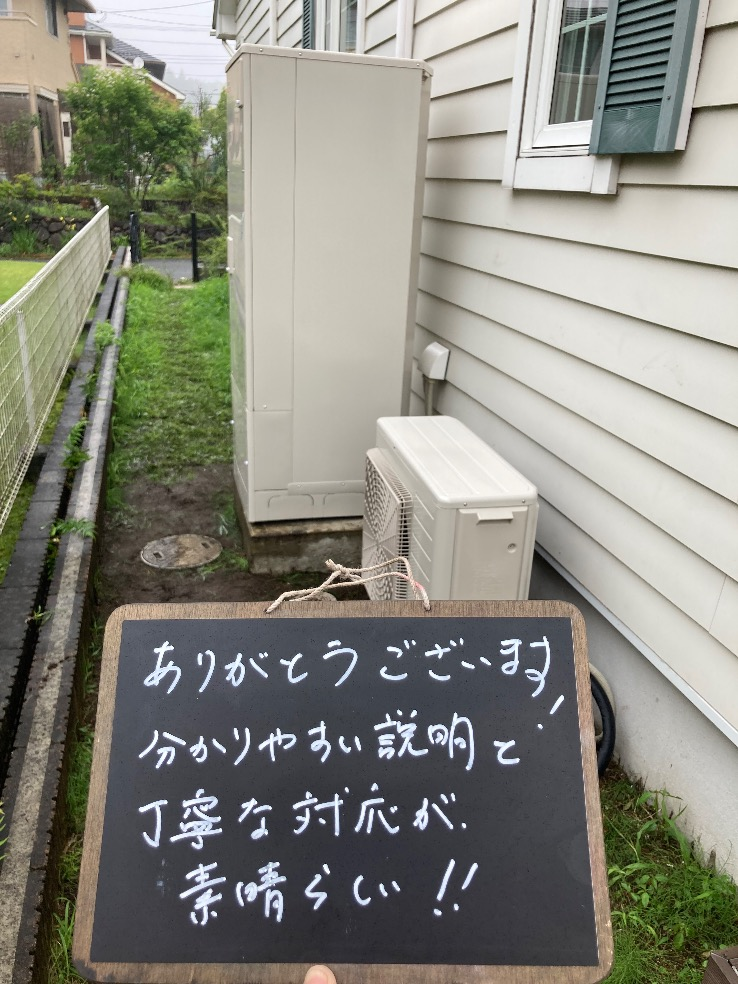 ありがとうございます!
分かりやすい説明と
丁寧な対応が
素晴らしい!!